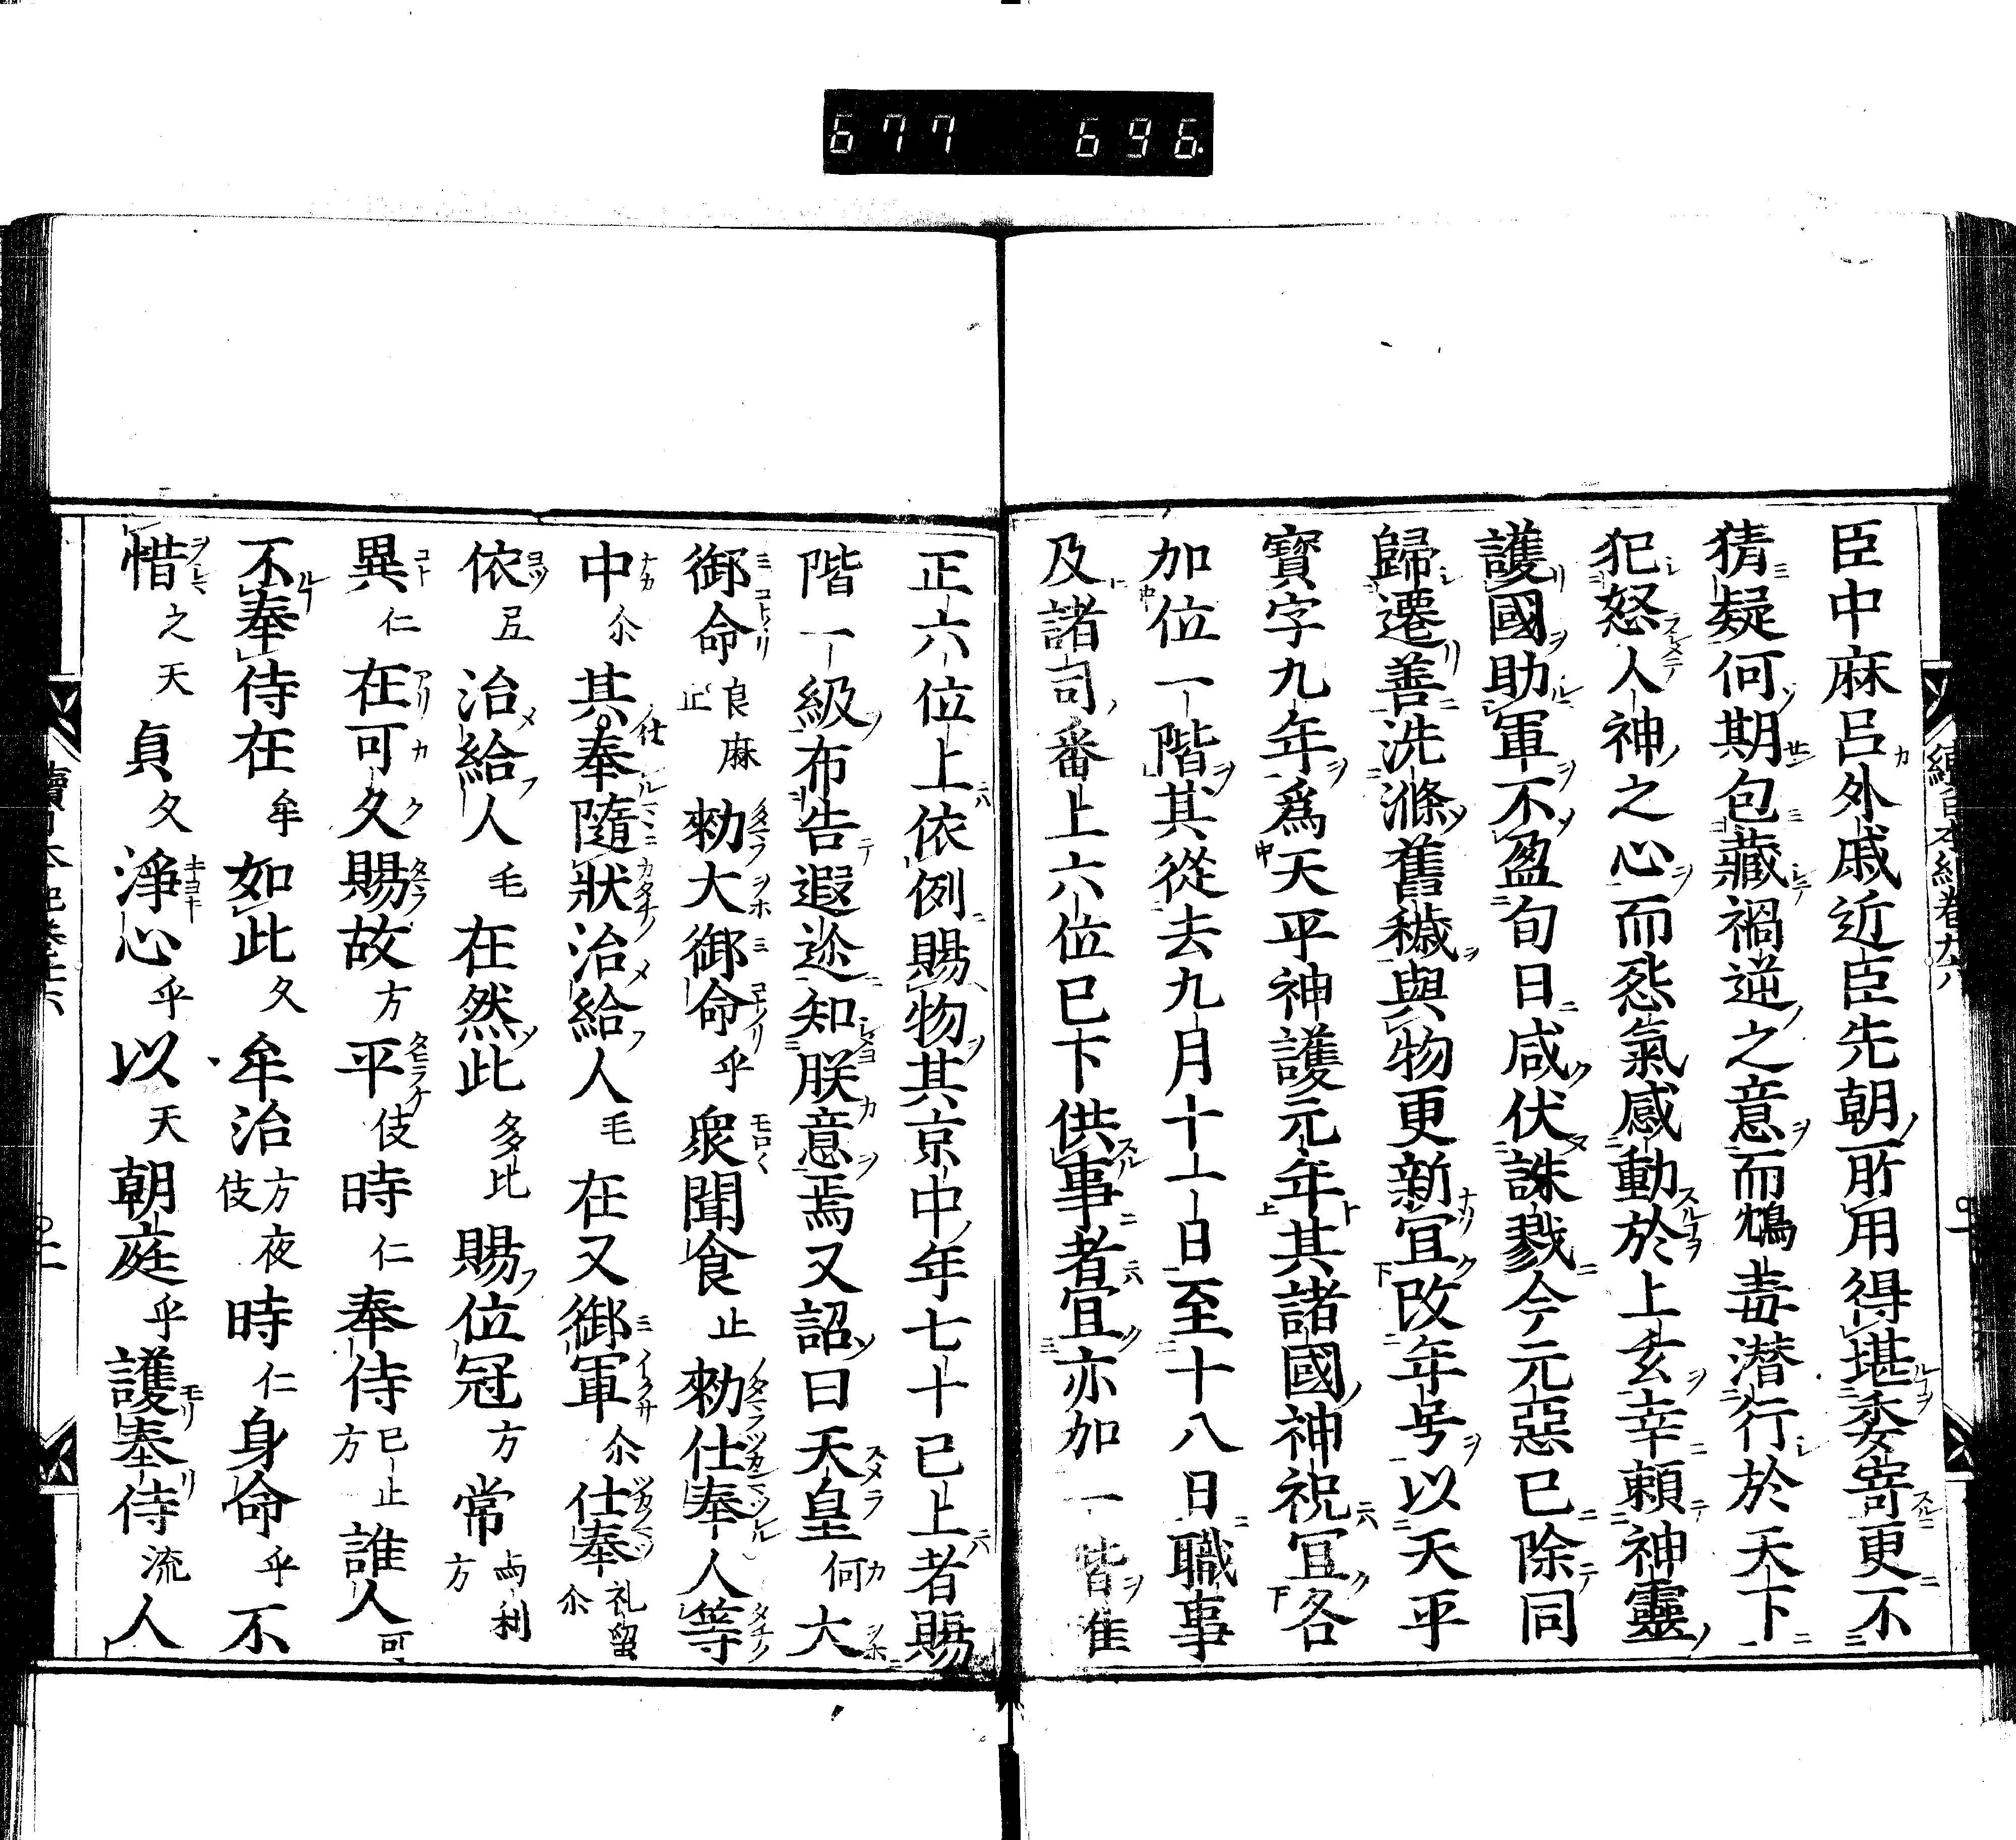 677 696
臣中麻呂外戚近臣先朝所用得堪委寄更不
猜疑何期包藏禍逆之意而鴆毒潜行於天下
犯怒人神之心而怨氣感動於上玄幸頼神靈
護國助軍不盈旬日咸伏誅戮今元惡已除同
歸遷善洗滌舊穢與物更新冝改年号以天平
寳字九年爲天平神護元年其諸國神祝冝各
加位一階其從去九月十一日至十八日職事
及諸司番上六位已下供事者冝亦加一階唯
正六位上依例賜物其京中年七十已上者賜
階一級布告遐迩知朕意焉又詔曰天皇何大
御命良麻止勑大御命乎衆聞食止勑仕奉人等
中尒其奉隨狀治給人毛在又御軍尒仕奉礼留尒
依弖治給人毛在然此多比賜位冠方常与利方
異仁在可久賜故方平伎時仁奉侍已止方誰人可
不奉侍在牟如此久牟治方夜伎時仁身命乎不
惜之天貞久淨心乎以天朝庭乎護奉侍流人